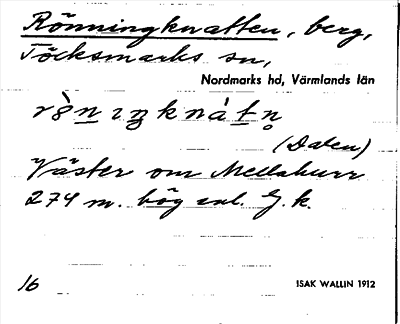 Rönningknatten, berg,
Töcksmarks sn,
Nordmarks hd, Värmlands län
(Dalen)
Väster om Mellaburr
274 m. hög enl. G. k.
16
ISAK WALLIN 1912